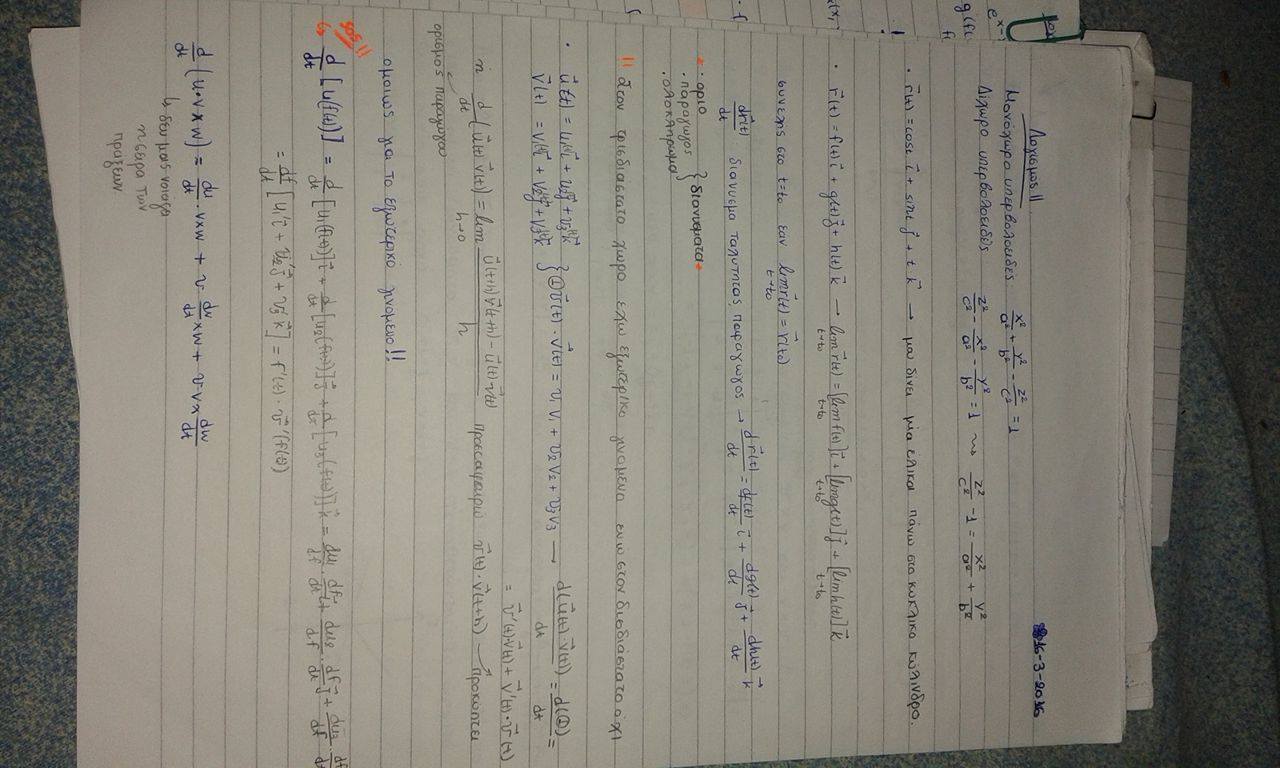 Λογισμος II 16-3-2016
Μονοχωρο υπερβολοειδες x²/a² + y²/b² - z²/c² = 1
Διχωρο υπερβολοειδές z²/c² - x²/a² - y²/b² = 1 ⇝ z²/c² - 1 = x²/a² + y²/b²
· r⃗(t) = cost i⃗ + sint j⃗ + t k⃗ → μου δίνει μια έλικα πάνω στο κυκλικο κυλινδρο.
· r⃗(t) = f(t) i⃗ + g(t) j⃗ + h(t) k⃗ → lim t→t₀ r⃗(t) = [lim t→t₀ f(t)] i⃗ + [lim t→t₀ g(t)] j⃗ + [lim t→t₀ h(t)] k⃗
συνεχης στο t=t₀ εαν lim t→t₀ r⃗(t) = r⃗(t₀)
dr⃗(t)/dt διανυσμα ταχυτητας, παραγωγος → dr⃗(t)/dt = df(t)/dt i⃗ + dg(t)/dt j⃗ + dh(t)/dt k⃗
· οριο
· παραγωγος } διανυσματα
· ολοκληρωμα
!! Στον τρισδιαστατο χωρο εχω εξωτερικο γινομενο ενω στον δισδιάστατο οχι
· u⃗(t) = u₁i⃗ + u₂j⃗ + u₃k⃗
v⃗(t) = v₁i⃗ + v₂j⃗ + v₃k⃗ } ① u⃗(t) · v⃗(t) = u₁v₁ + u₂v₂ + u₃v₃ → d(u⃗(t) v⃗(t))/dt = d(①)/dt =
= u⃗'(t)·v⃗(t) + v⃗'(t)·u⃗(t)
ή d/dt (u⃗(t) v⃗(t)) = lim h→0 u⃗(t+h) v⃗(t+h) - u⃗(t) v⃗(t) / h προσαφαιρω u⃗(t) · v⃗(t+h) → Προκυπτει
ορισμος παραγωγου
ομοιως για το εξωτερικό γινομενο!!
SOS!!
↳ d/dt [u(f(t))] = d/dt [u₁(f(t))] i⃗ + d/dt [u₂(f(t))] j⃗ + d/dt [u₃(f(t))] k⃗ = du₁/df df/dt i⃗ + du₂/df df/dt j⃗ + du₃/df df/dt
= df/dt [u₁'i⃗ + u₂'j⃗ + u₃'k⃗] = f'(t) · u⃗'(f(t))
d/dt (u · v × w) = du/dt · v×w + u · dv/dt × w + u · v × dw/dt
↳ δεν μας νοιαζει
η σειρα των
πραξεων